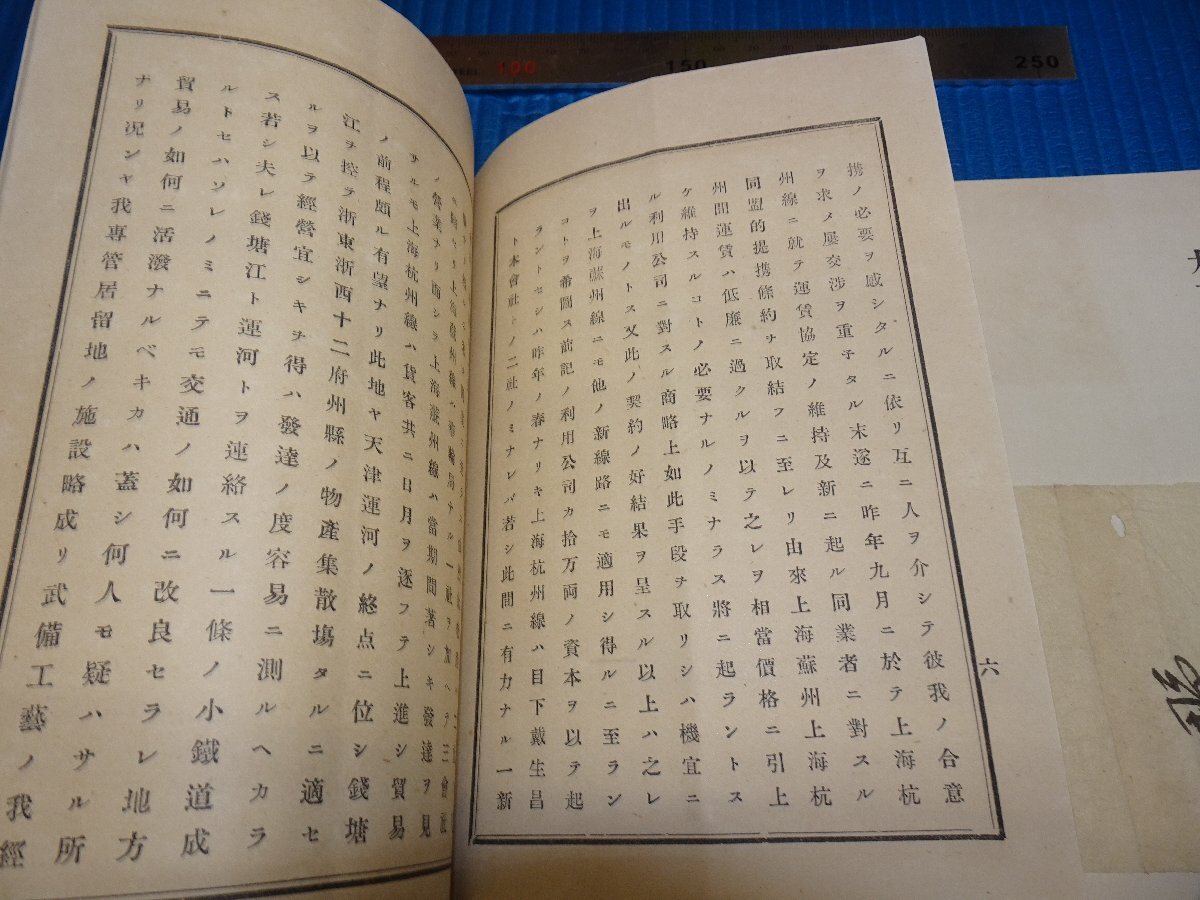 100
150
250
六
携ノ必要ヲ感シタルニ依リ互ニ人ヲ介シテ彼我ノ合意
ヲ求メ屢交渉ヲ重子タル末遂ニ昨年九月ニ於テ上海杭
州線ニ就テ運賃協定ノ維持及新ニ起ル同業者ニ對スル
同盟的提携條約ヲ取結フニ至レリ由來上海蘇州上海杭
州間運賃ハ低廉ニ過クルヲ以テ之レヲ相當價格ニ引上
ケ維持スルコトノ必要ナルノミナラス將ニ起ラントス
ル利用公司ニ對スル商略上如此手段ヲ取リシハ機宜ニ
出ルモノトス又此ノ契約ノ好結果ヲ呈スル以上ハ之レ
ヲ上海蘇州線ニモ他ノ新線路ニモ適用シ得ルニ至ラン
コトヲ希圖ス前記ノ利用公司カ拾万両ノ資本ヲ以テ起
ラントセシハ昨年ノ春ナリキ上海杭州線ハ目下戴生昌
ト本會社トノ二社ノミナレバ若シ此間ニ有力ナル一新
ヲ加ヘテ三會社
ノ營業ナリ而シテ上海蘇州線ハ當期間著シキ發達ヲ見
サルモ上海杭州線ハ貨客共ニ日月ヲ逐フテ上進シ貿易
ノ前程頗ル有望ナリ此地ヤ天津運河ノ終点ニ位シ錢塘
江ヲ控テ浙東浙西十二府州縣ノ物產集散場タルニ適セ
ルヲ以テ經營宜シキヲ得ハ發達ノ度容易ニ測ルヘカラ
ス若シ夫レ錢塘江ト運河トヲ連絡スル一條ノ小鐵道成
ルトセハソレノミニテモ交通ノ如何ニ改良セラレ地方
貿易ノ如何ニ活潑ナルベキカハ蓋シ何人モ疑ハサル所
ナリ況ンヤ我專管居留地ノ施設略成リ武備工藝ノ我經